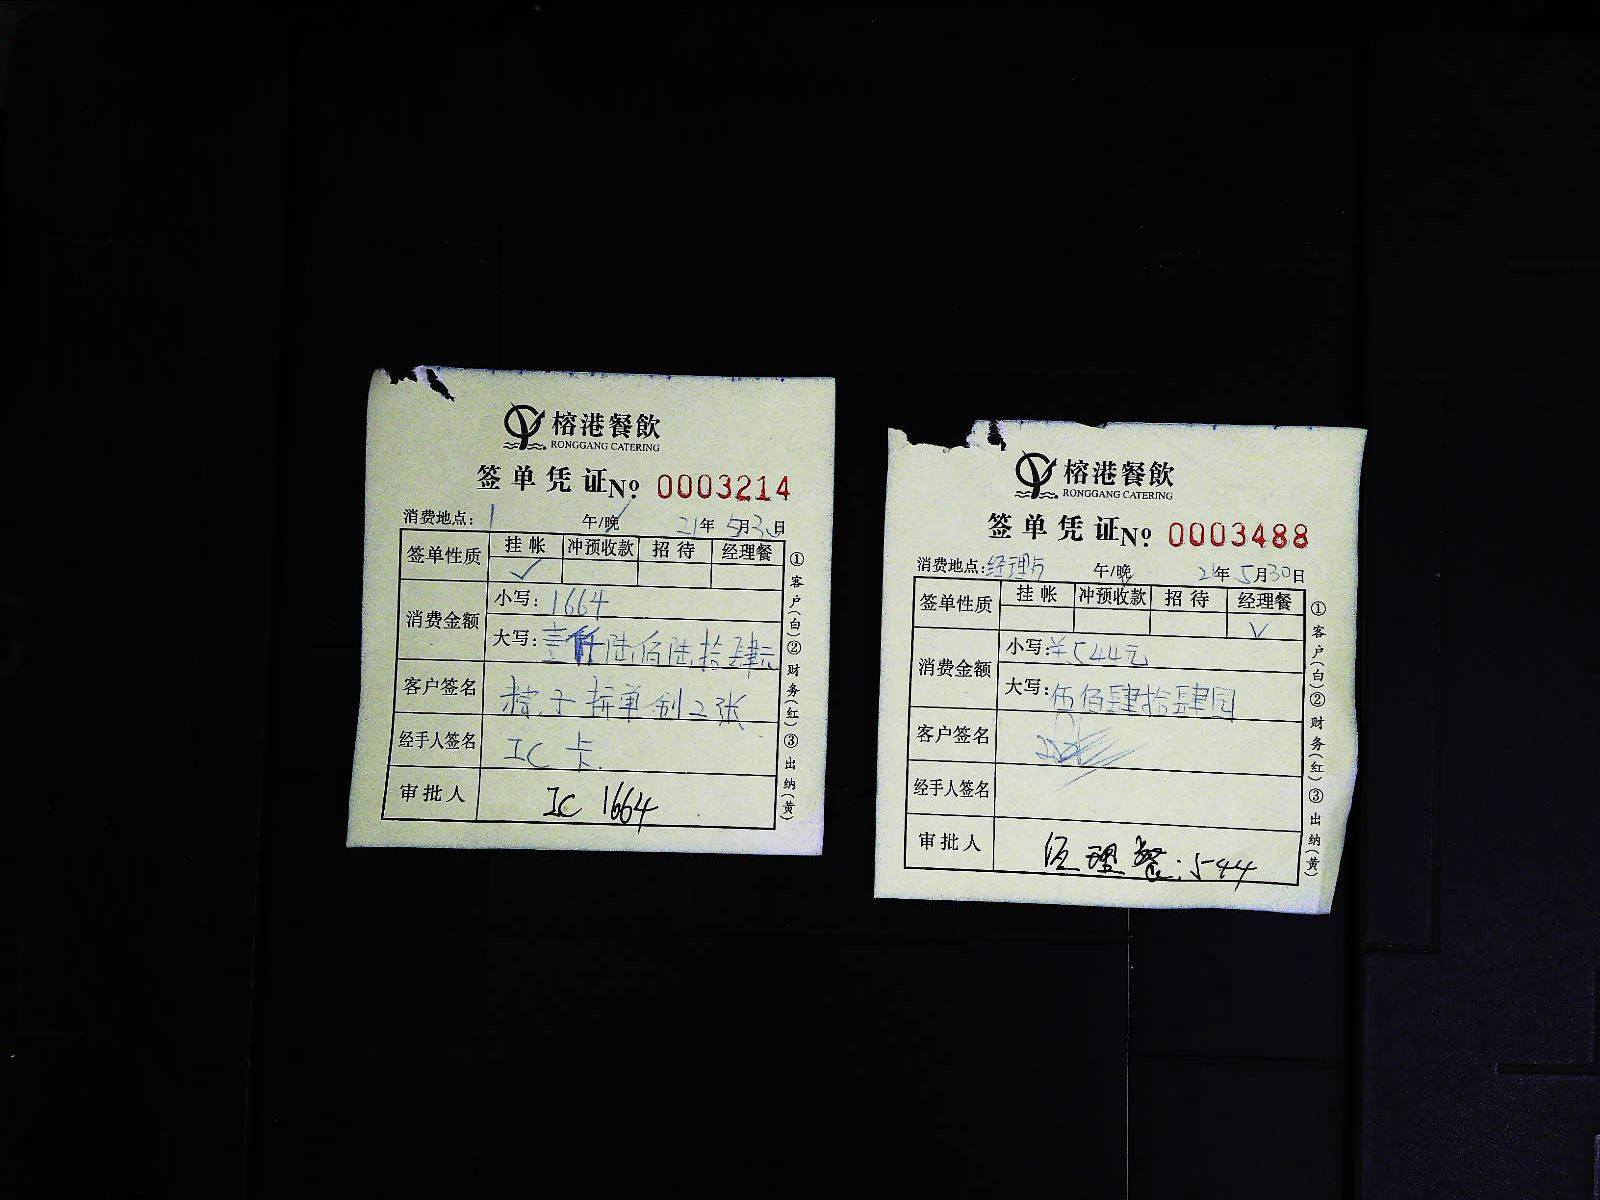 榕港餐飲
RONGGANG CATERING
签单凭证 No 0003214
消费地点: 1 午/晚 21年5月30日
签单性质 挂帐 冲预收款 招待 经理餐
✓
消费金额 小写: 1664
大写: 壹仟陆佰陆拾肆元
客户签名 粽子 单 2张
经手人签名 IC 卡
审批人 IC 1664
①客户(白)②财务(红)③出纳(黄)
榕港餐飲
RONGGANG CATERING
签单凭证 No 0003488
消费地点: 经理 午/晚 21年5月30日
签单性质 挂帐 冲预收款 招待 经理餐
✓
消费金额 小写: ¥544元
大写: 伍佰肆拾肆园
客户签名
经手人签名
审批人 经理餐: 544
①客户(白)②财务(红)③出纳(黄)